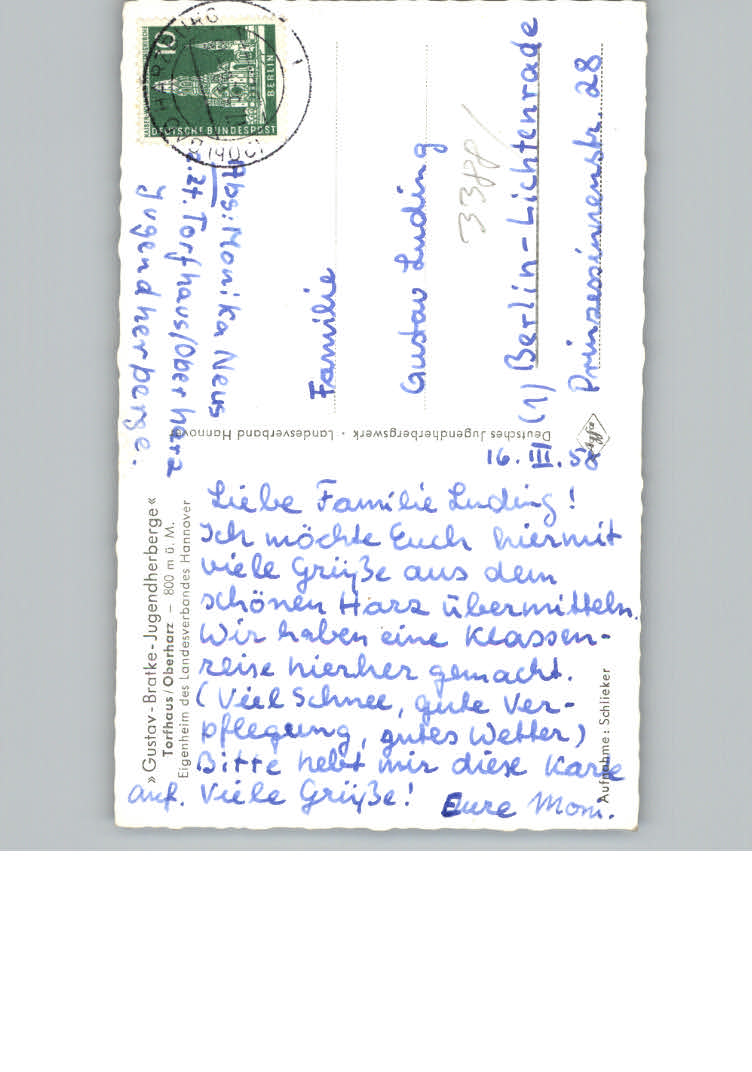 16. III. 5
Liebe Familie Luding!
Ich möchte Euch hiermit
viele Grüße aus dem
schönen Harz übermitteln.
Wir haben eine Klassen-
reise hierher gemacht.
(Viel Schnee, gute Ver-
pflegung, gutes Wetter)
Bitte hebt mir diese Karte
auf. Viele Grüße! Eure Moni.
»Gustav-Bratke-Jugendherberge«
Torfhaus/Oberharz – 800 m ü. M.
Eigenheim des Landesverbandes Hannover
Aufnahme: Schlieker
Deutsches Jugendherbergswerk · Landesverband Hannover
Agfa
Abs: Monika Neus
z.Zt. Torfhaus/Oberharz
Jugendherberge.
Familie
Gustav Luding
(1) Berlin-Lichtenrade
Prinzessinnenstr. 28
3388/
10
DEUTSCHE BUNDESPOST
BERLIN